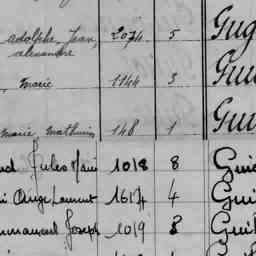 Adolphe, Jean, 2074 5 Gug
Alexandre
, Marie 1144 3 Gui
Marie Mathurin 148 1 Gui
Jules Marie 1018 8 Gui
Ange Laurent 1614 4 Gui
mmanuel Joseph 1019 8 Guil